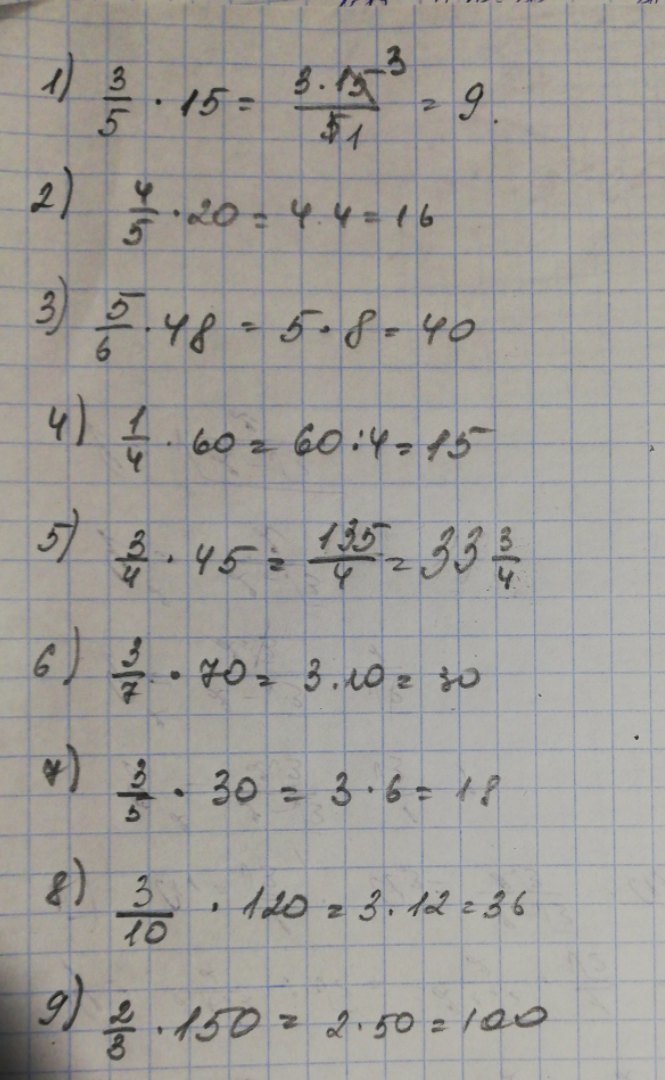 1) 3/5 · 15 = 3·15/5 3/1 = 9.
2) 4/5 · 20 = 4·4 = 16
3) 5/6 · 48 = 5·8 = 40
4) 1/4 · 60 = 60:4 = 15
5) 3/4 · 45 = 135/4 = 33 3/4
6) 3/7 · 70 = 3·10 = 30
7) 3/5 · 30 = 3·6 = 18
8) 3/10 · 120 = 3·12 = 36
9) 2/3 · 150 = 2·50 = 100